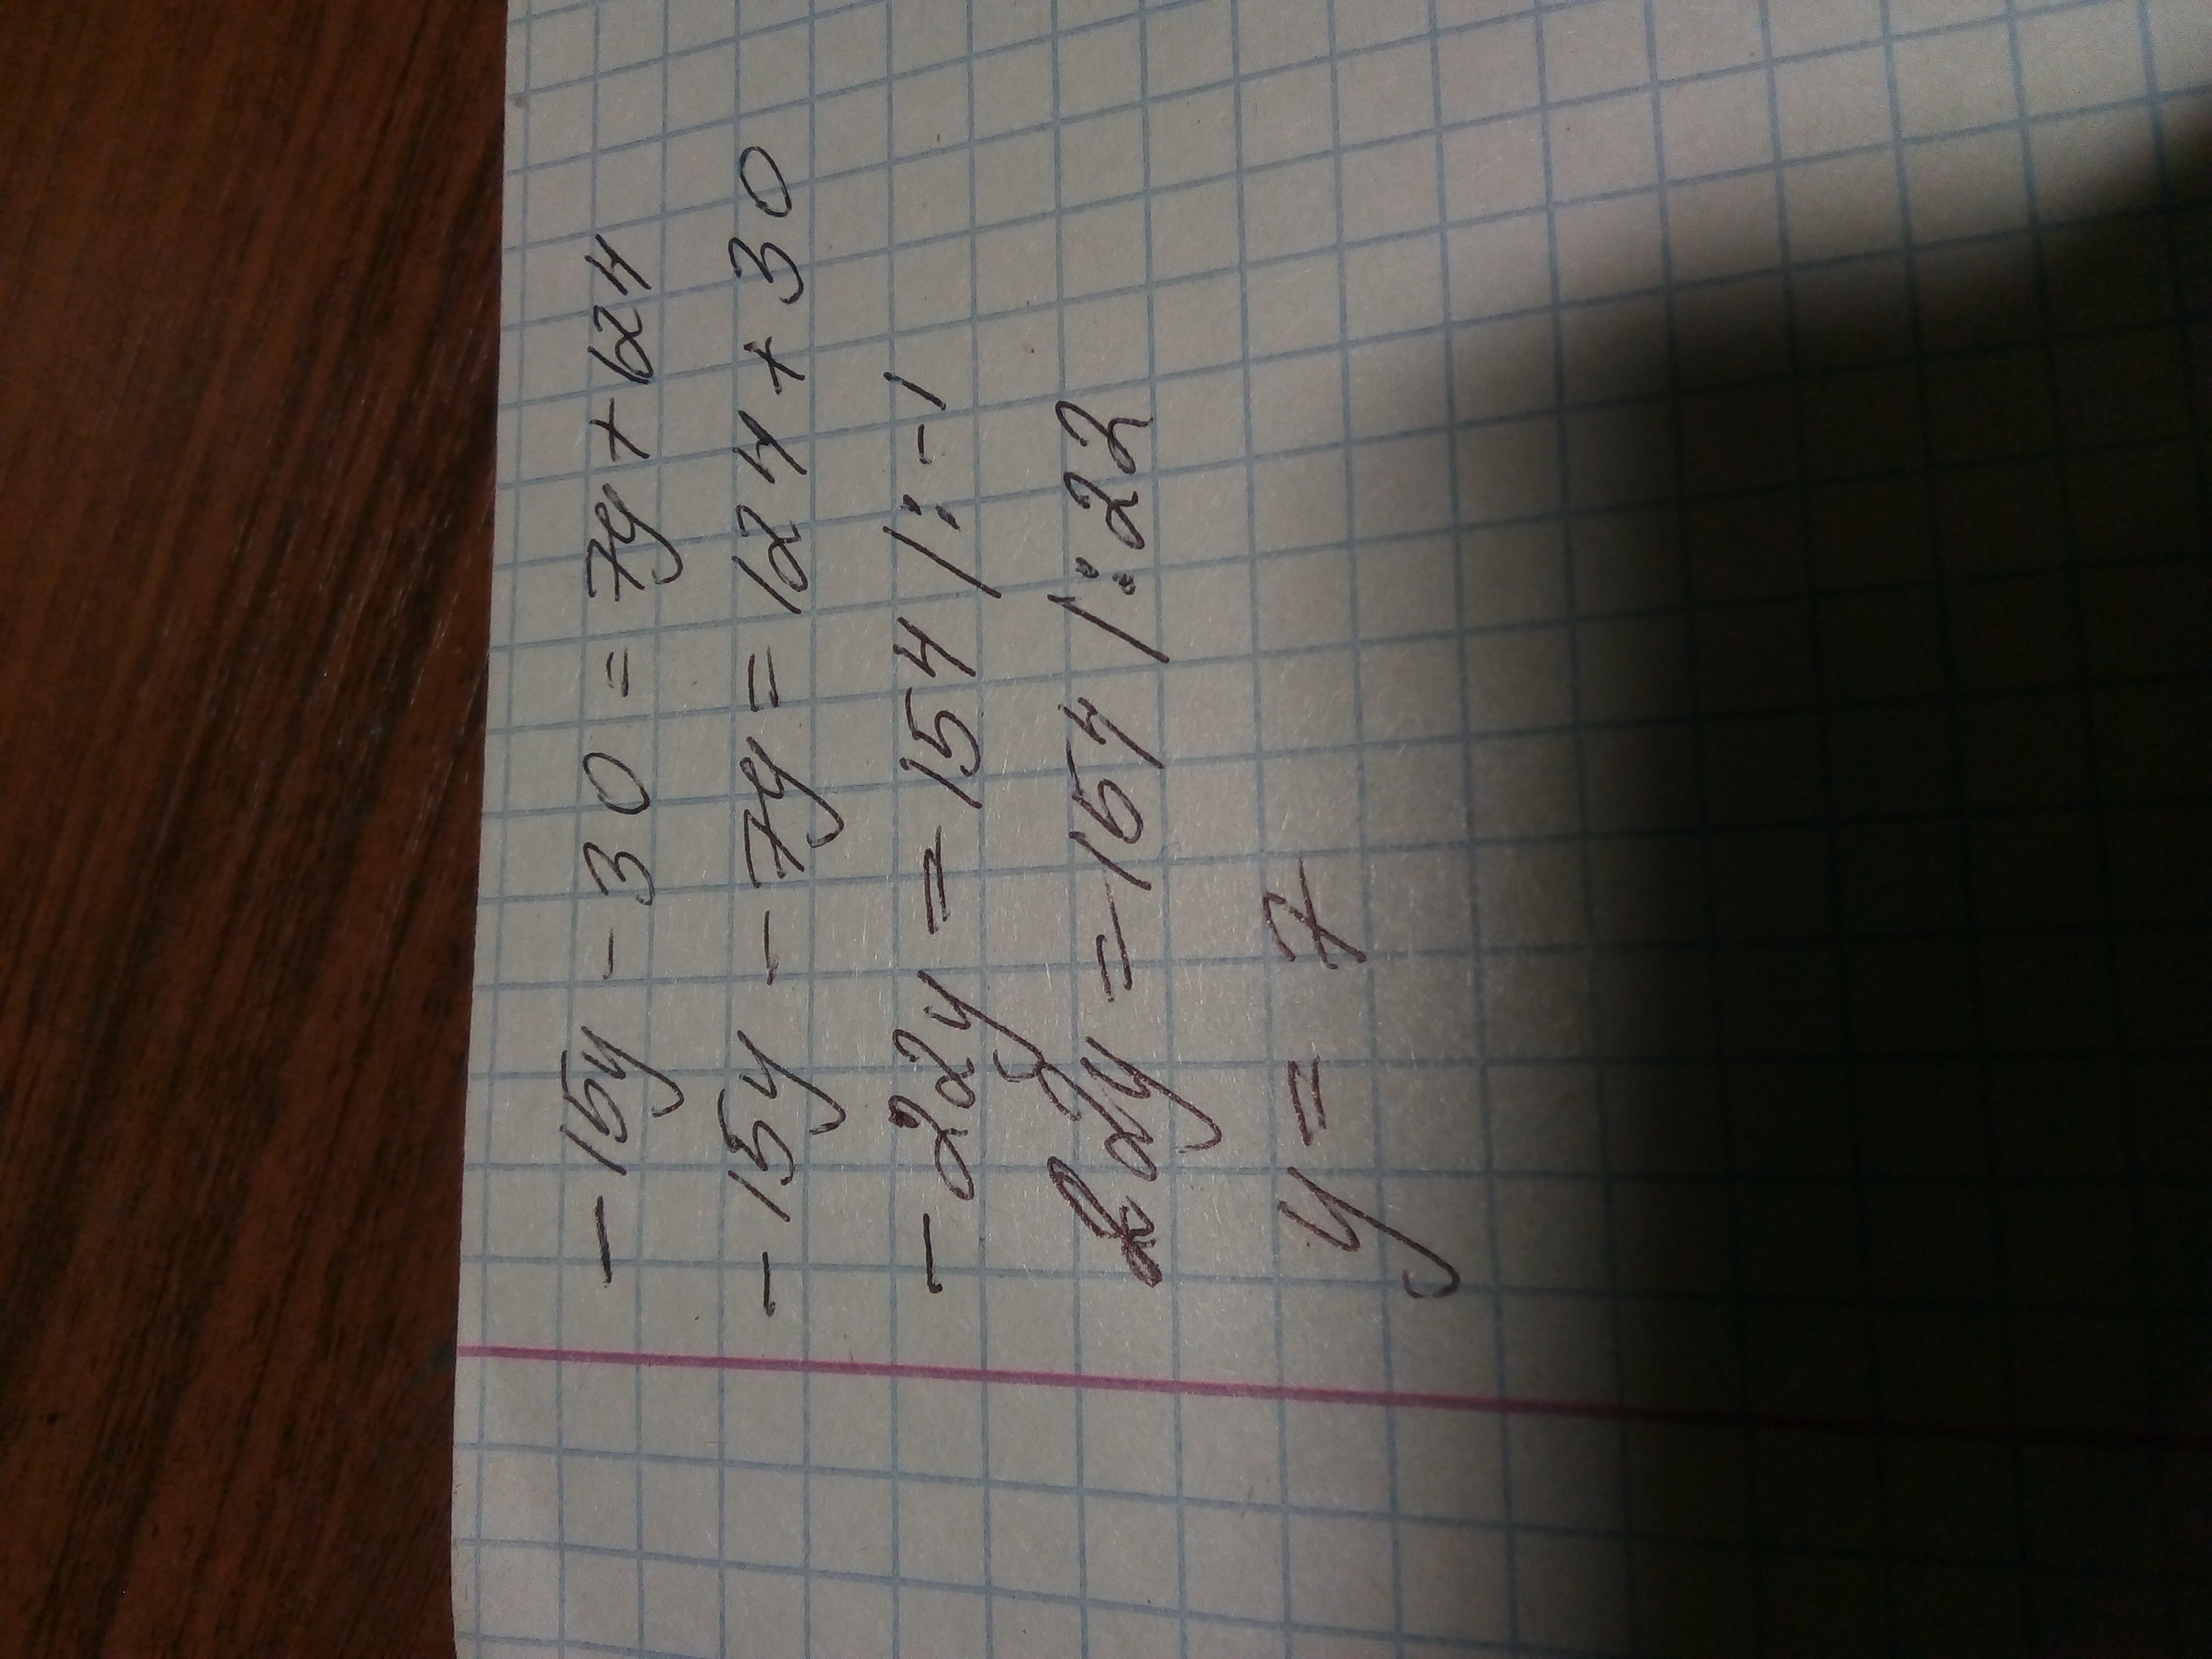 -15y - 30 = 7y + 124
-15y - 7y = 124 + 30
-22y = 154 /: -1
22y = -154 /: 22
y = 7